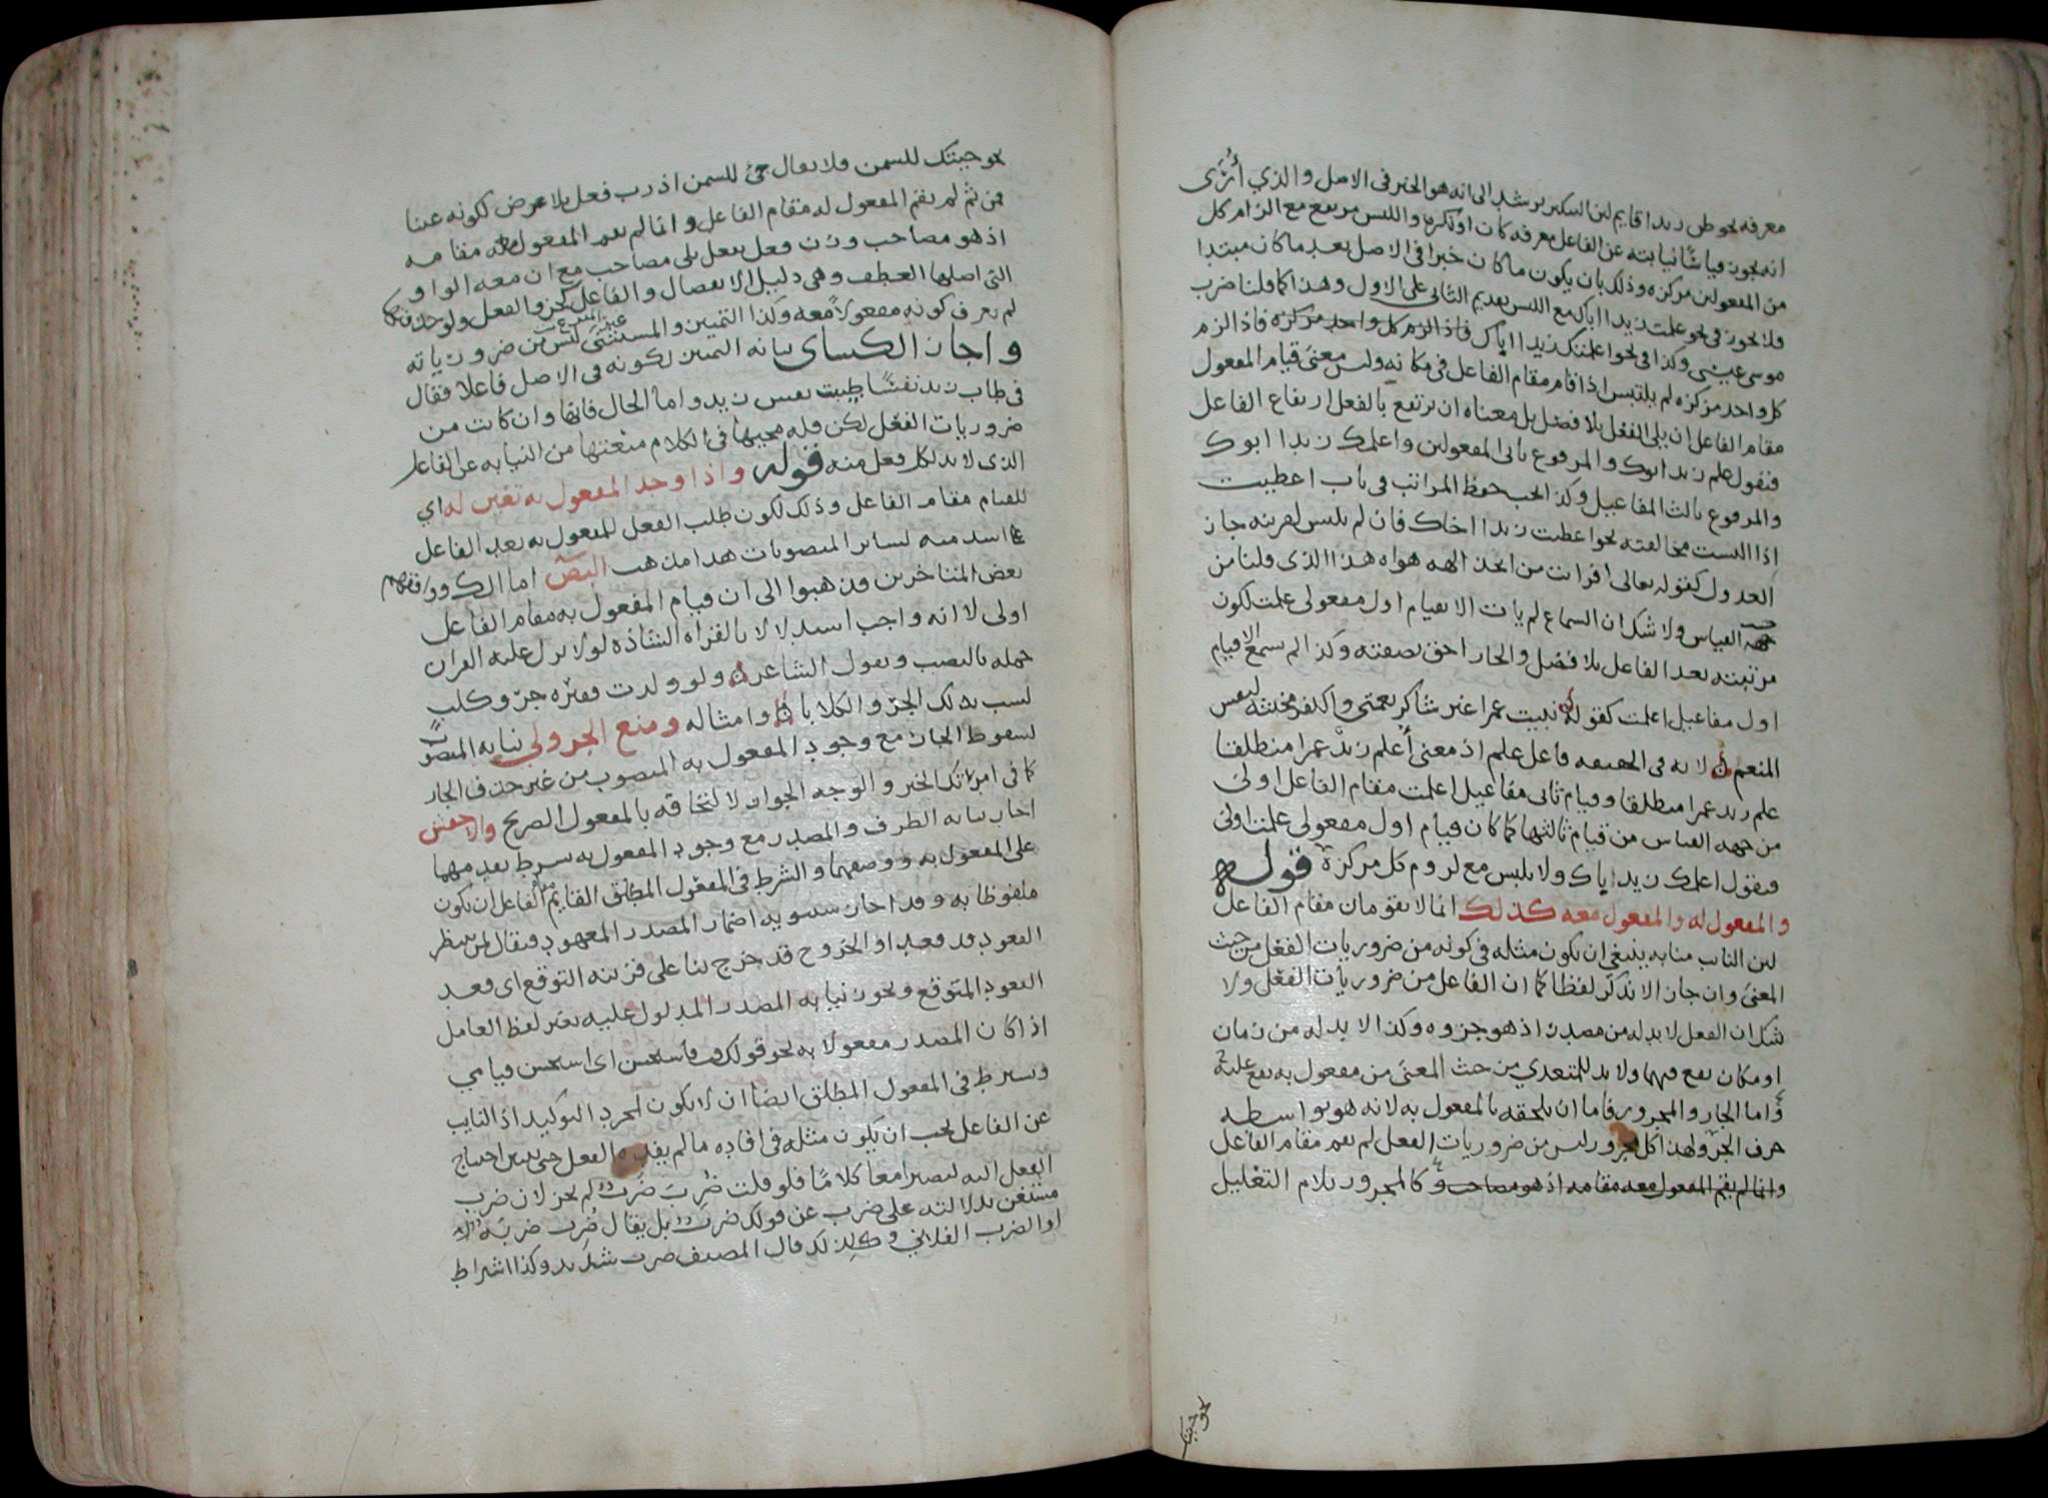 معرفه نحو ظن زيدا قايم لان التنكير يرشد الى انه هو الخبر فى الاصل والذي أُرَى
انه يجوز قياسًا نيابته عن الفاعل معرفه كان او نكره واللبس مرتفع مع الزام كل
من المفعولين مركزه وذلك بان يكون ما كان خبرا فى الاصل بعد ما كان مبتدا
فلا يجوز فى نحو علمت زيدا اباك مع اللبس تقديم الثانى على الاول وهذا كما قلنا ضرب
موسى عيسى وكذا فى نحو اعلمتك زيدا اباك فاذا الزم كل واحد مركزه فاذا الزم
كل واحد مركزه لم يلتبس اذا قام مقام الفاعل فى مكانه وليس معنى قيام المفعول
مقام الفاعل ان يلى الفعل بلا فصل بل معناه ان يرتفع بالفعل ارتفاع الفاعل
فنقول علم زيدا ابوك والمرفوع ثانى المفعولين واعلمك زيدا ابوك
والمرفوع ثالث المفاعيل وكذا يجب حفظ المراتب فى باب اعطيت
اذا البست مخالفته نحو اعطيت زيدا اخاك فان لم يلبس لقرينه جاز
العدول كقوله تعالى افرايت من اتخذ الهه هواه هذا الذى قلنا من
جهة القياس ولا شك ان السماع لم يات الا بقيام اول مفعولى علمت لكون
مرتبته بعد الفاعل بلا فصل والجار احق بصقبه وكذا لم يسمع الا قيام
اول مفاعيل اعلمت كقوله نبيت عمرا غير شاكر نعمتى والكفر مخبثه لنفس
المنعم لانه فى الحقيقه فاعل علم اذ معنى أعلم زيدٌ عمرا منطلقا
علم زيد عمرا منطلقا وقيام ثانى مفاعيل اعلمت مقام الفاعل اولى
من جهه القياس من قيام ثالثها كما كان قيام اول مفعولى علمت اولى
فنقول اعلمك زيدا اباك ولا يلبس مع لزوم كل مركزه قوله
والمفعول له والمفعول معه كذلك انما لا يقومان مقام الفاعل
لان النايب منابه ينبغى ان يكون مثله فى كونه من ضروريات الفعل من حيث
المعنى وان جاز الا تذكر لفظا كما ان الفاعل من ضروريات الفعل ولا
شك ان الفعل لا بد له من مصدر اذ هو جزوه وكذا لا بد له من زمان
او مكان يقع فيهما ولا بد للمتعدي من حيث المعنى من مفعول به يقع عليه
واما الجار والمجرور فاما ان يلحقه بالمفعول به لانه هو بواسطه
حرف الجر ولهذا كل مجرور ليس من ضروريات الفعل لم يقم مقام الفاعل
وانما لم يقم المفعول معه مقامه اذ هو مصاحب و كالمجرور بلام التعليل
نحو جيتك
نحو جيتك للسمن فلا يقال جئ للسمن اذ رب فعل بلا غرض لكونه عبثا
فمن ثم لم يقم المفعول له مقام الفاعل وانما لم يقم المفعول معه مقامه
اذ هو مصاحب ورب فعل يفعل بلى مصاحب مع ان معه الواو
التى اصلها العطف وهى دليل الانفصال والفاعل كجزو الفعل ولو حذفتها
لم يعرف كونه مفعولا معه وكذا التمييز والمستثنى ليس من ضرورياته
واجاز الكساى نيابه التمييز لكونه فى الاصل فاعلا فقال
فى طاب زيد نفسًا طيبت نفس زيد واما الحال فانها وان كانت من
ضروريات الفعل لكن قله مجيها فى الكلام منعتها من النيابه عن الفاعل
الذى لا بد لكل فعل منه قوله واذا وجد المفعول به تعين له اي
للقيام مقام الفاعل وذلك لكون طلب الفعل للمفعول به بعد الفاعل
اشد منه لساير المنصوبات هذا مذهب البص اما الك ووافقهم
بعض المتاخرين فذهبوا الى ان قيام المفعول به مقام الفاعل
اولى لا انه واجب استدلالا بالقراه الشاذه لولا نزل عليه القران
جمله بالنصب وبقول الشاعر ولو ولدت قفيره جرو كلب
لسب بذلك الجرو الكلابا وامثاله ومنع الجزولى نيابه المنصوب
لسقوط الجار مع وجود المفعول به المنصوب من غير حذف الجار
كما فى امرتك الخير والوجه الجواز لالتحاقه بالمفعول الصريح والاخفش
اجاز نيابه الظرف والمصدر مع وجود المفعول به بشرط تقدمهما
على المفعول به ووصفهما والشرط فى المفعول المطلق القايم مقام الفاعل ان يكون
ملفوظا به وقد اجاز سيبويه اضمار المصدر المعهود فيقال لمن ينتظر
القعود قد قعد او الخروج قد خرج بنا على قرينه التوقع اى قعد
القعود المتوقع ويجوز نيابه المصدر المدلول عليه بغير لفظ العامل
اذا كان المصدر مفعولا به نحو قولك قمت فاستحسن اى استحسن قيامي
ويشرط فى المفعول المطلق ايضا ان لا يكون لمجرد التوكيد اذ النايب
عن الفاعل يجب ان يكون مثله فى افاده ما لم يفده الفعل حتى يتبين احتياج
الفعل اليه ليصيرا معا كلامًا فلو قلت ضُرِبَ ضَربٌ لم يجز لان ضرب
مستغن بدلالته على ضرب عن قولك ضربٌ بل يقال ضُرب ضربةٌ
او الضرب الفلاني وكذلك قال المصنف ضرب شديد وكذا اشراط